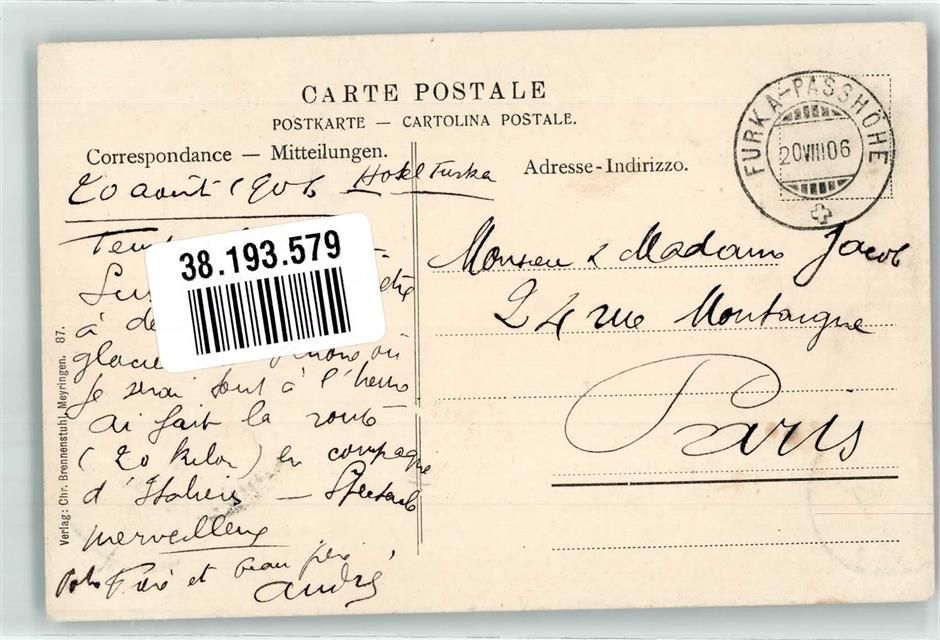 CARTE POSTALE
POSTKARTE — CARTOLINA POSTALE.
Correspondance — Mitteilungen.
Adresse-Indirizzo.
FURKA-PASSHÖHE
20 VIII 06
20 août 1906 Hotel Furka
38.193.579
à
je serai tout à l'heure
ai fait la route
(20 kilom) en compagnie
d'Italiens — Spectacle
merveilleux
Frère et beau frère
André
Monsieur & Madame Jacob
24 rue Montaigne
Paris
Verlag: Chr. Brennenstuhl, Meyringen. 87.